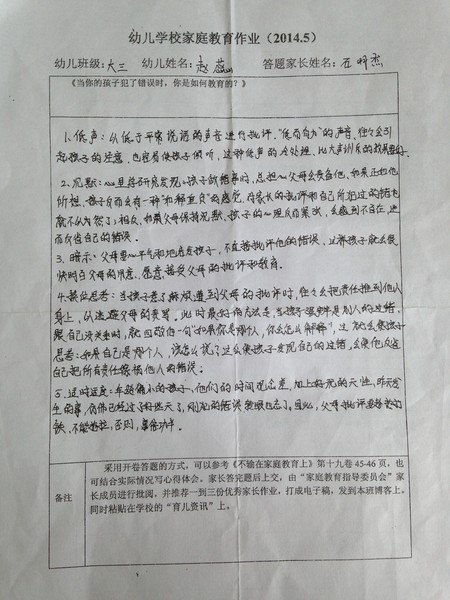 幼儿学校家庭教育作业（2014.5）
幼儿班级:大三 幼儿姓名:赵蕊 答题家长姓名:
《当你的孩子犯了错误时，你是如何教育的？》
1、低声：以低于平常说话的声音进行批评，“低而有力”的声音，往往会引
起孩子的注意，也容易使孩子倾听，这种低声的冷处理，比大声训斥的效果更好。
2、沉默：心里学研究发现，孩子做错事时，总担心父母会责备他，如果正如他
所担，孩子反而会有一种“如释重负”的感觉，对家长的批评和自己所犯过的错也
就不以为然了；相反，如果父母保持沉默，孩子的心理反而紧张，会感到不自在，进
而反省自己的错误。
3、暗示：父母要心平气和地启发孩子，不直接批评他的错误，这样孩子就会很
快明白父母的用意，愿意接受父母的批评和教育。
4、换位思考：当孩子惹了麻烦遭到父母的批评时，往往会把责任推到他人
身上，以逃避父母的责骂。此时最好的方法是，当孩子强辩是别人的过错、
跟自己没关系时，就回敬他一句“如果你是那个人，你会怎么解释”，这就会使孩子
思考：如果自己是那个人，该怎么说？这会使孩子发现自己的过错，会使他反省
自己把所有责任嫁祸他人的错误。
5、适时适度：年龄偏小的孩子，他们的时间观念差，加上好玩的天性，昨天发
生的事，仿佛已经过了好些天了，刚犯的错误转眼也忘了。因此，父母批评要趁热打
铁，不能拖拉，否则，事倍功半。
备注
采用开卷答题的方式，可以参考《不输在家庭教育上》第十九卷 45-46 页，也
可结合实际情况写心得体会。家长答完题后上交，由“家庭教育指导委员会”家
长成员进行批阅，并推荐一到三份优秀家长作业，打成电子稿，发到本班博客上。
同时粘贴在学校的“育儿资讯”上。